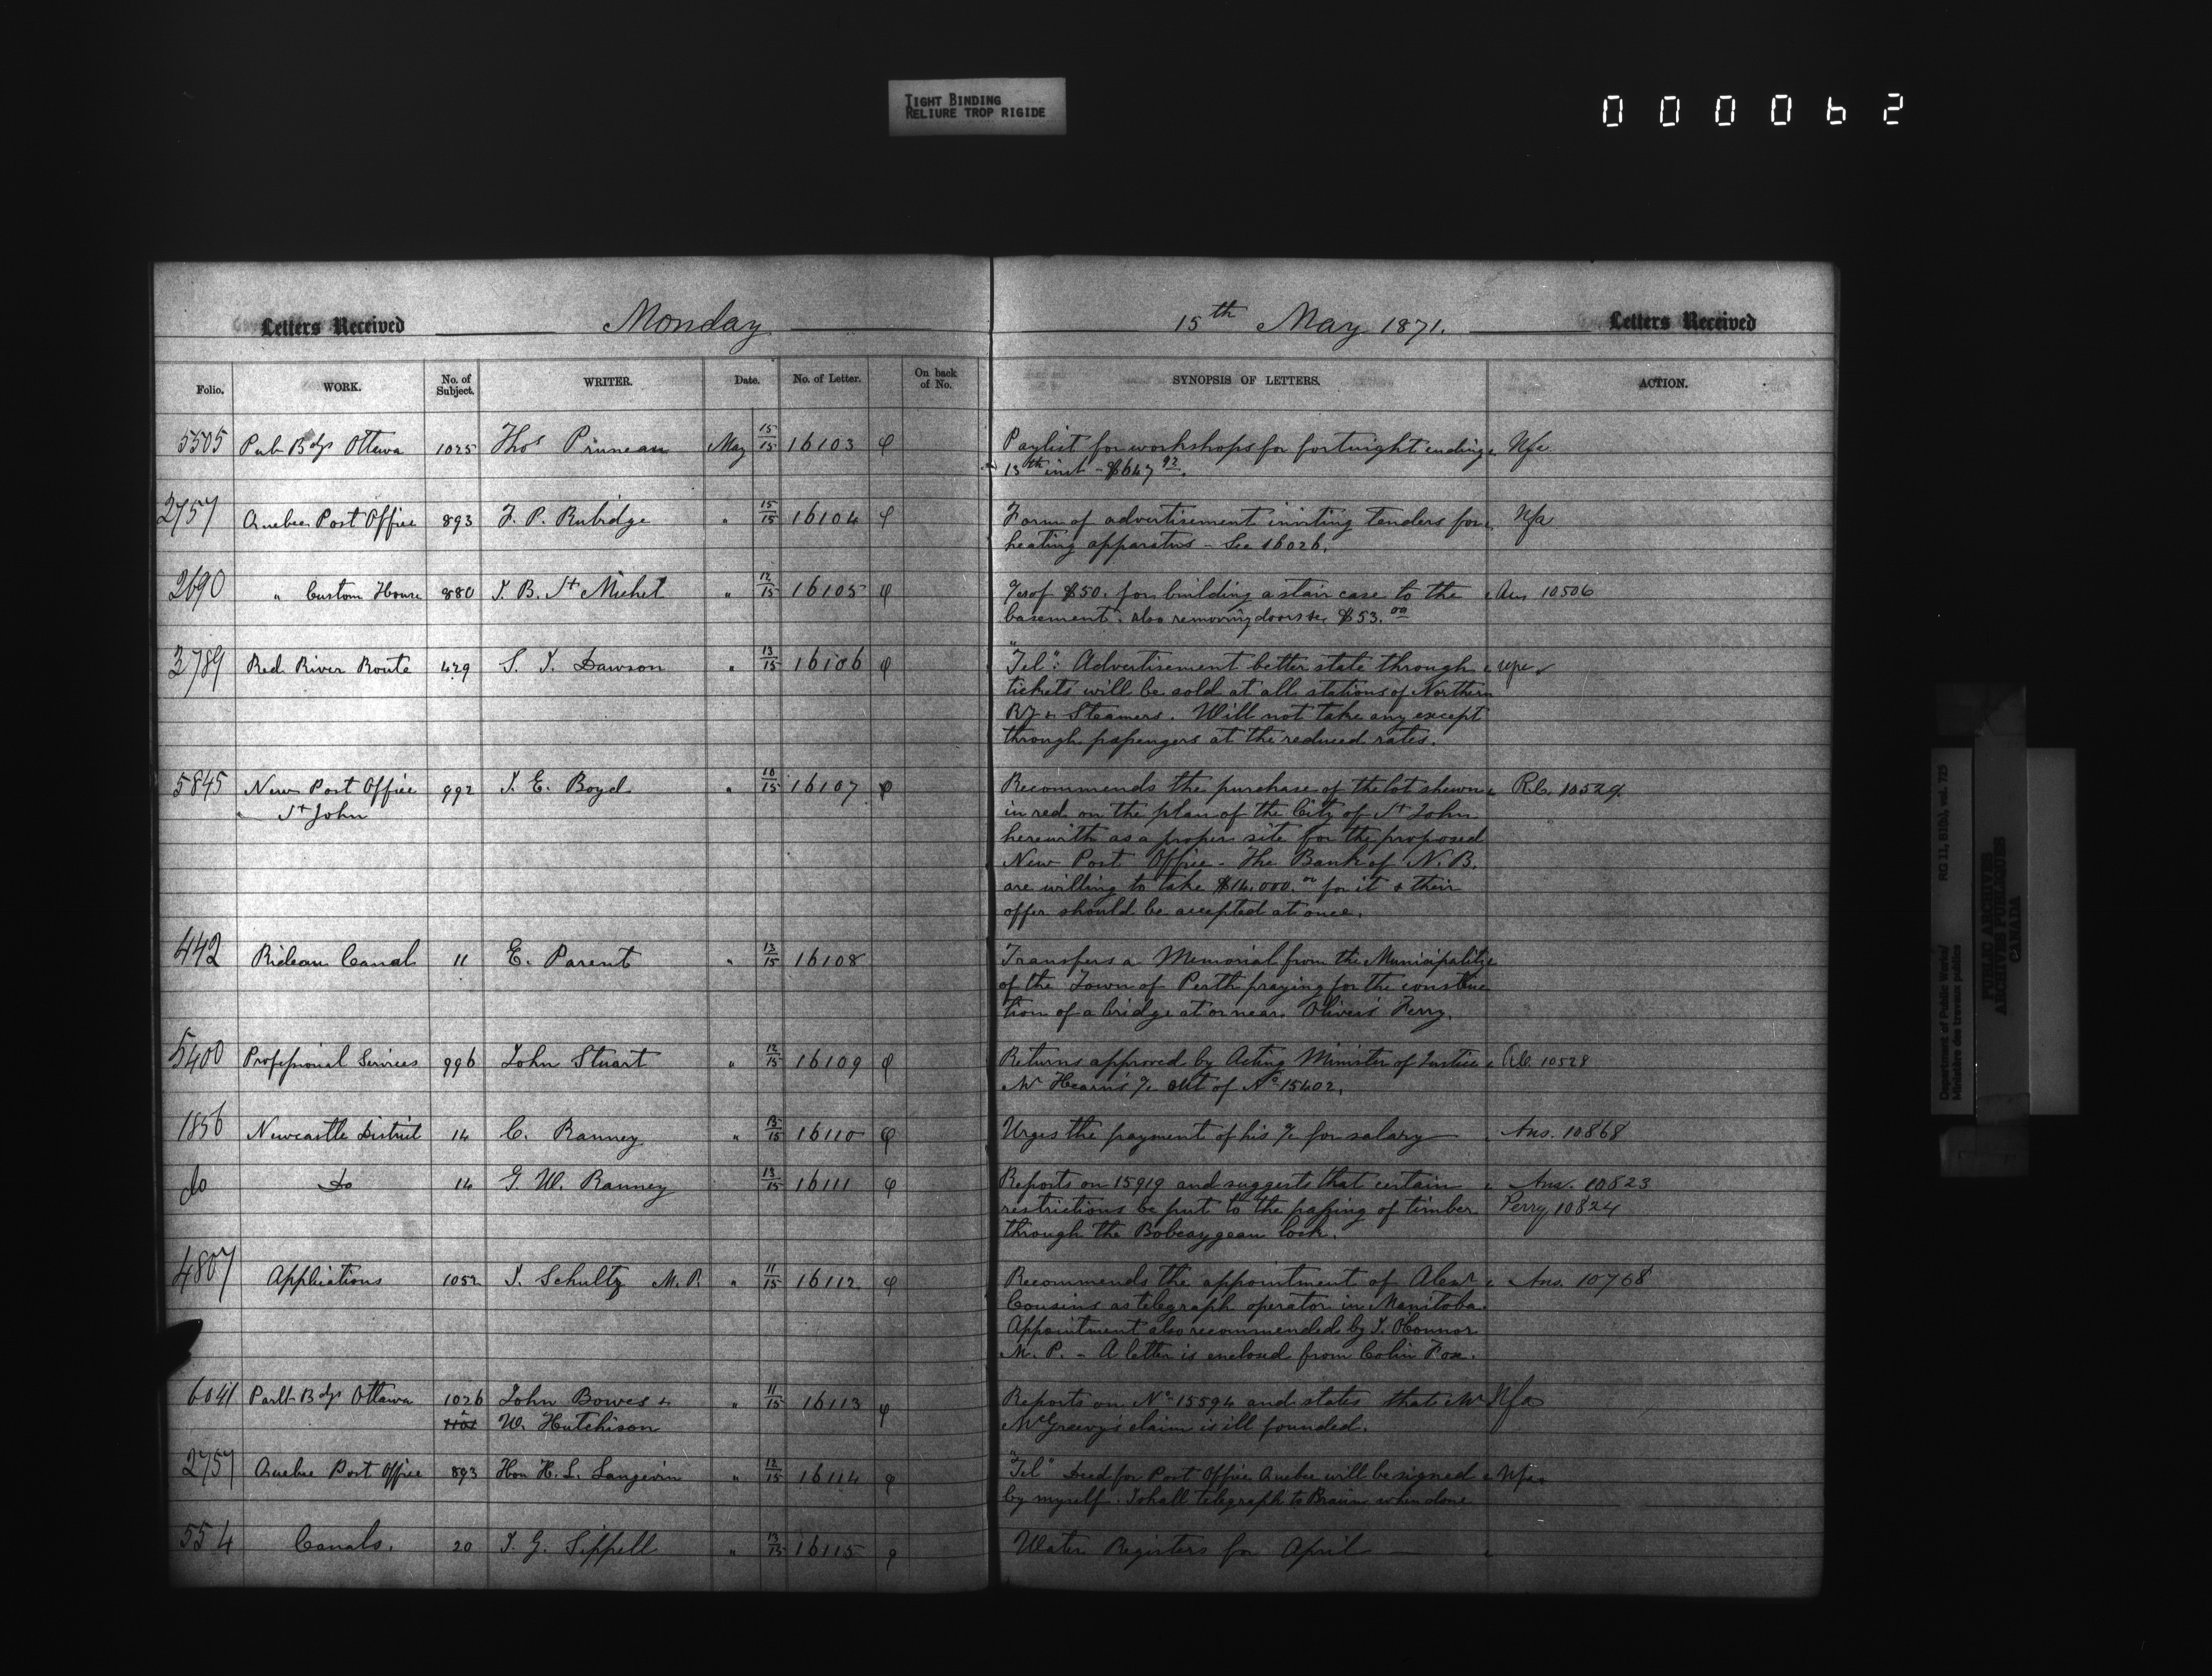 TIGHT BINDING
RELIURE TROP RIGIDE
000062
Letters Received Monday 15th May 1871. Letters Received
Folio. WORK. No. of Subject. WRITER. Date. No. of Letter. On back of No. SYNOPSIS OF LETTERS. ACTION.
5505 Pub Bdgs Ottawa 1025 Thos Pruneau May 15/15 16103 φ Paylist for workshops for fortnight ending Nfa
13th inst - $647 92.
2757 Quebec Post Office 893 F. P. Rubidge " 15/15 16104 φ Form of advertisement inviting tenders for Nfa
heating apparatus - See 16026.
2690 " Custom House 880 J. B. St Michel " 12/15 16105 φ %c of $50. for building a stair case to the Ans 10506
basement. also removing doors &c $53.00
3789 Red River Route 429 S. J. Dawson " 13/15 16106 φ "Tel": Advertisement better state through
tickets will be sold at all stations of Northern
Ry & Steamers. Will not take any except
through passengers at the reduced rates.
5845 New Post Office 992 J. E. Boyd " 10/15 16107 φ Recommends the purchase of the lot shewn R.C. 10529.
" St John in red on the plan of the City of St John
herewith as a proper site for the proposed
New Post Office - The Bank of N. B.
are willing to take $16,000.00 for it & their
offer should be accepted at once.
442 Rideau Canal 11 E. Parent " 13/15 16108 Transfers a Memorial from the Municipality
of the Town of Perth praying for the construc
tion of a bridge at or near Oliver's Ferry.
5400 Professional Services 996 John Stuart " 12/15 16109 φ Returns approved by Acting Minister of Justice 10528
Mr Hearn's %c out of No 15402.
1856 Newcastle District 14 C. Ranney " 13/15 16110 φ Urges the payment of his %c for salary Ans. 10868
do Do 14 G. W. Ranney " 13/15 16111 φ Reports on 15919 and suggests that certain Ans. 10823
restrictions be put to the passing of timber Perry 10824
through the Bobcaygean lock.
4807 Applications 1052 J. Schultz M.P. " 11/15 16112 φ Recommends the appointment of Alexr Ans. 10768
Cousins as telegraph operator in Manitoba.
Appointment also recommended by J. O'Connor
M. P. - A letter is enclosed from Colin Fox.
6041 Parlt Bdgs Ottawa 1026 John Bowes & " 11/15 16113 φ Reports on No 15594 and states that Mr Nfa
W. Hutchison McGreevy's claim is ill founded.
2757 Quebec Post Office 893 Hon H. L. Langevin " 12/15 16114 φ "Tel" Deed for Post Office Quebec will be signed Nfa
by myself. I shall telegraph to Braun when done
554 Canals. 20 J. G. Sippell " 13/15 16115 φ Water Registers for April
Department of Public Works/ RG 11, B1(b), vol. 725
Ministère des travaux publics
PUBLIC ARCHIVES
ARCHIVES PUBLIQUES
CANADA